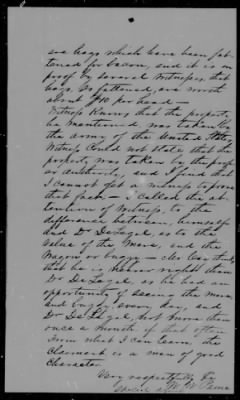 are hogs which have been fat-
tened for bacon, and it is in
proof by several Witnesses, that
hogs, so fattened, are worth
about $10 per head —
Witness Knows that the property
he mentioned was taken by
the army of the United States
Witness could not state that the
property was taken by the proper
authority, and I find that
I cannot get a witness to prove
that fact — I called the at-
tention of Witness, to the
difference between, himself
and Dr DeLagal as to the
value of the Mare, and the
Wagon or buggy — He
that he is right than
Dr DeLagal, as he had an
opportunity of seeing the mare
and buggy every day, and
Dr DeLagal, not more than
once a month if that often
From what I can learn the
Claimant is a man of good
Character
Very respectfully
W. W. Paine